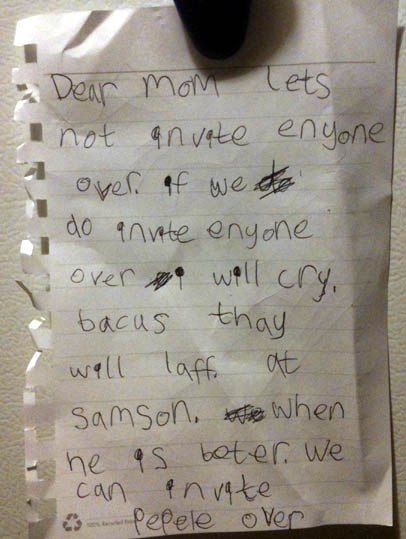 Dear mom lets
not invite enyone
over. if we
do invite enyone
over i will cry.
bacus thay
will laff. at
samson. when
he is beter. we
can invite
pepele over
100% Recycled